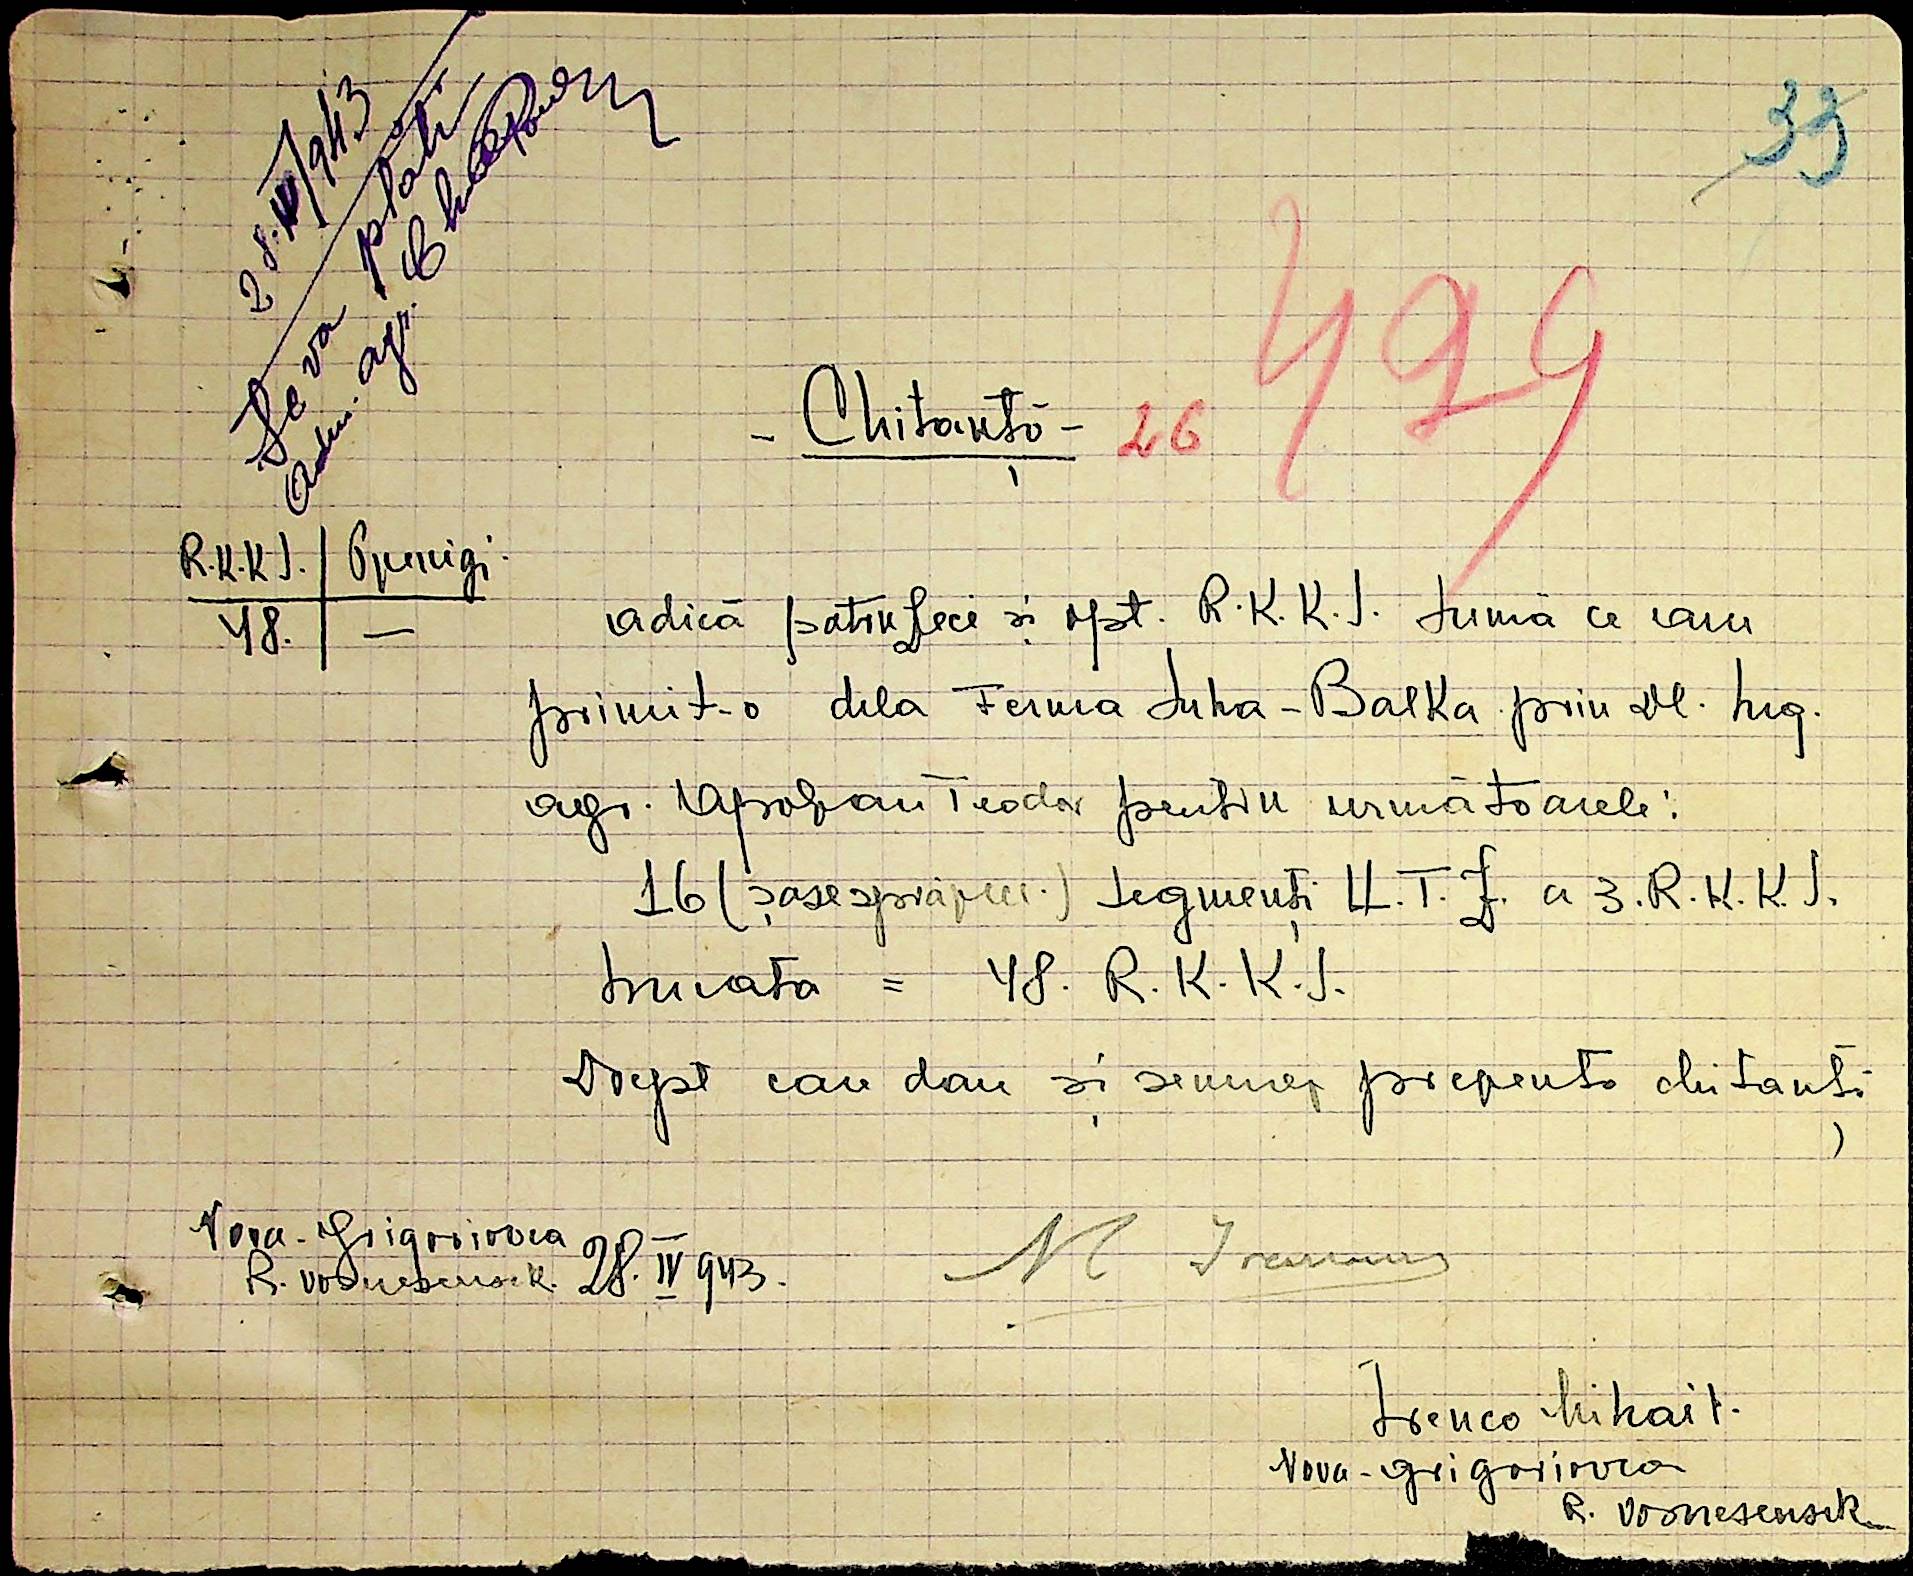 33
28.IV/943
Se va plăti
Adm. agr.
- Chitanță - 26
429
R.K.K.S. | Pfenigi
48. | —
adică patruzeci și opt. R.K.K.S. sumă ce am
primit-o dela Ferma Suha-Balka prin Dl. Ing.
agr. Teodor pentru următoarele:
16 (șasesprăzece.) segmenți U.T.Z. a 3. R.K.K.S.
bucata = 48. R.K.K.S.
Drept care dau și semnez prezenta chitanță
Nova-Grigoriovca
R. Vosnesensck. 28.IV 943.
M
Irenco Mihail.
Nova-Grigoriovca
R. Vosnesensck